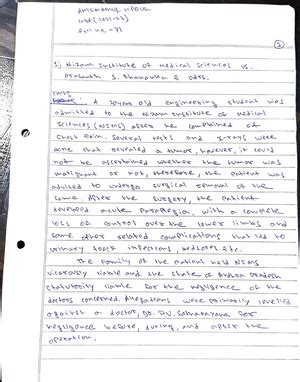 (2021-23)
Roll no. - 71
1) Nizam Institute of Medical Sciences vs.
Prasanth S. Dhananka & Odrs.
Facts
A 20 year old engineering student was
admitted to the Nizam Institute of Medical
Sciences (NIMS) after he complained of
Chest Pain. Several tests and x-rays were
done that revealed a tumor, however, it could
not be ascertained whether the tumor was
malignant or not, therefore, the patient was
advised to undergo surgical removal of the
same. After the surgery, the patient
developed acute Paraplegia, with a complete
loss of control over the lower limbs and
some other related complications that led to
urinary tract infections, bedsores, etc.
The family of the patient held NIMS
vicariously liable and the state of Andhra Pradesh
statutorily liable for the negligence of the
doctors concerned. Allegations were primarily levelled
against a doctor, Dr. P.V. Satnarayana for
negligence before, during, and after the
operation.